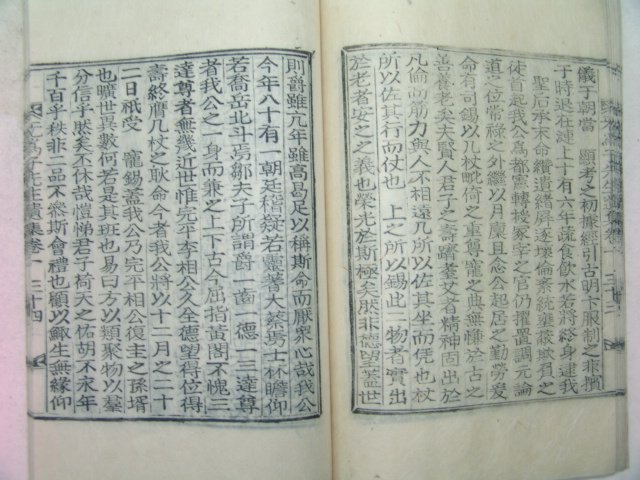 儀于朝當 顯考之初據經引古明卞服制之非擯
于時退在湹上丁有六年蔬食飲水若將終身逮我
聖后承末命纘遺緖屏逐壞倫案統壅蔽欺君之
徒首起我公爲都憲轉授冢宰之官仍擢置調元論
道之位常祿之外繼以月廩且念公起居之勤勞爰
命有司錫以几杖毗倚之重尊寵之典無憾於古之
善養老矣夫賢人君子之壽躋耋艾者精神固出於
凡倫而筋力與人不相遠几所以佐其坐而凭也杖
所以佐其行而仗也 上之所以錫此二物者實出
於老者安之之義也榮光於斯極矣然非德望蓋世
則爵雖亢年雖高曷足以稱斯命而厭衆心哉我公
今年八十有一朝廷稽疑若靈蓍大蔡焉士林瞻仰
若喬岳北斗焉鄒夫子所謂爵一齒一德一三達尊
者我公之一身而兼之上下古今屈指黃閣不愧三
達尊者無幾近世惟完平李相公久全德望得位得
壽終膺几杖之耿命今者我公將以十二月之二十
二日祇受 寵錫蓋我公乃完平相公復主之孫壻
也曠世異數何若是其班也易曰方以類聚物以羣
分信乎然矣丕休哉愷悌君子荷天之佑胡不永年
千百乎秩非二品不參斯會禮也顧以鯫生無緣仰
先生遺集卷十 三十四